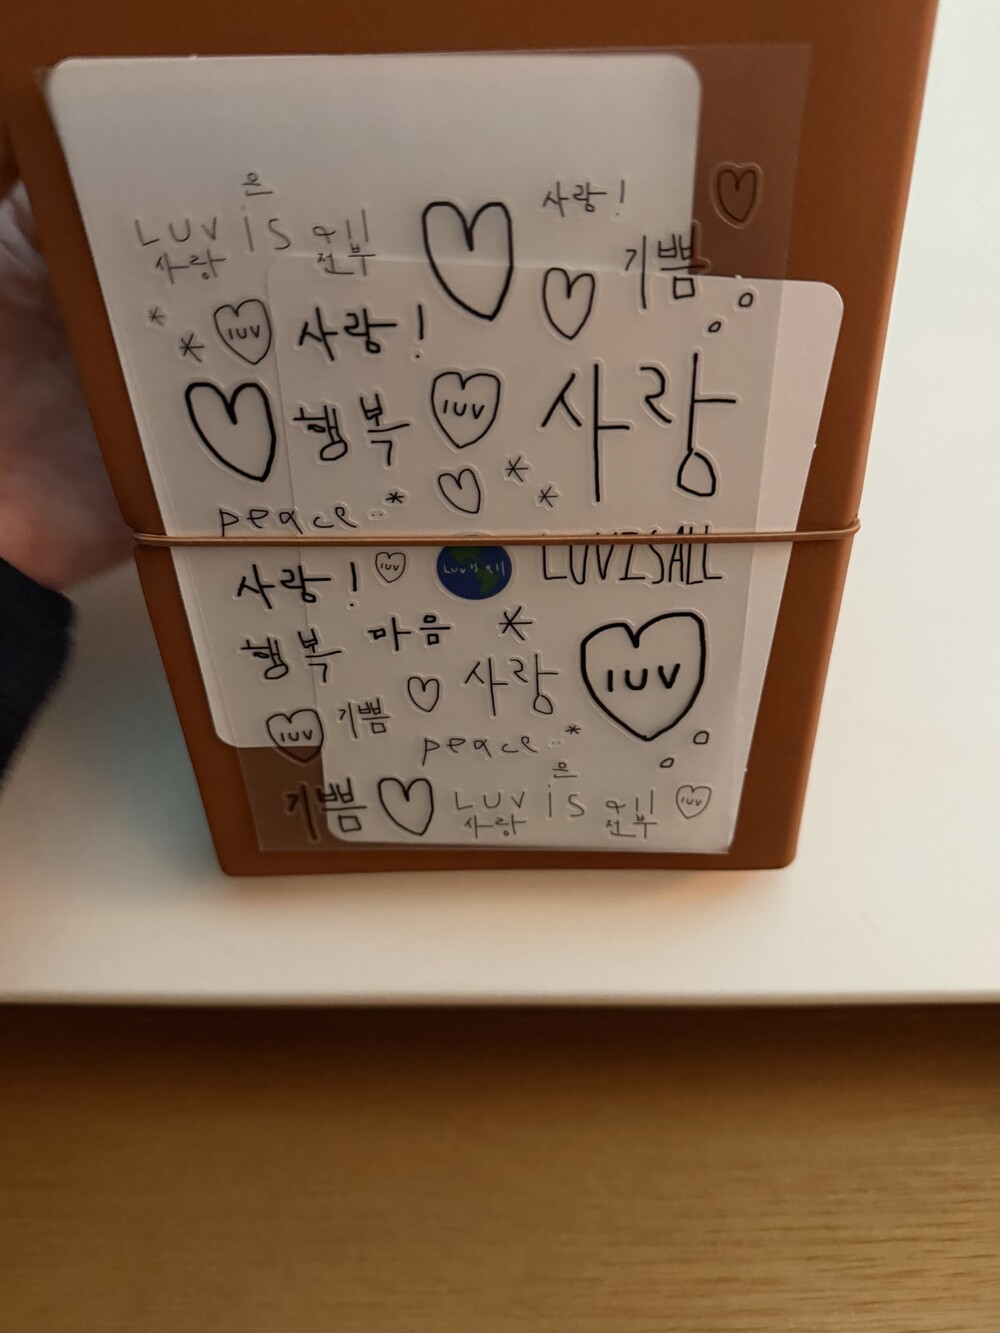 은
Luv is all
사랑 전부
사랑!
기쁨
luv
사랑!
행복
luv
사랑
peace..*
luv is all
LUVISALL
사랑!
luv
행복
마음
사랑
luv
luv
기쁨
peace..*
기쁨
은
Luv is all
사랑 전부
luv